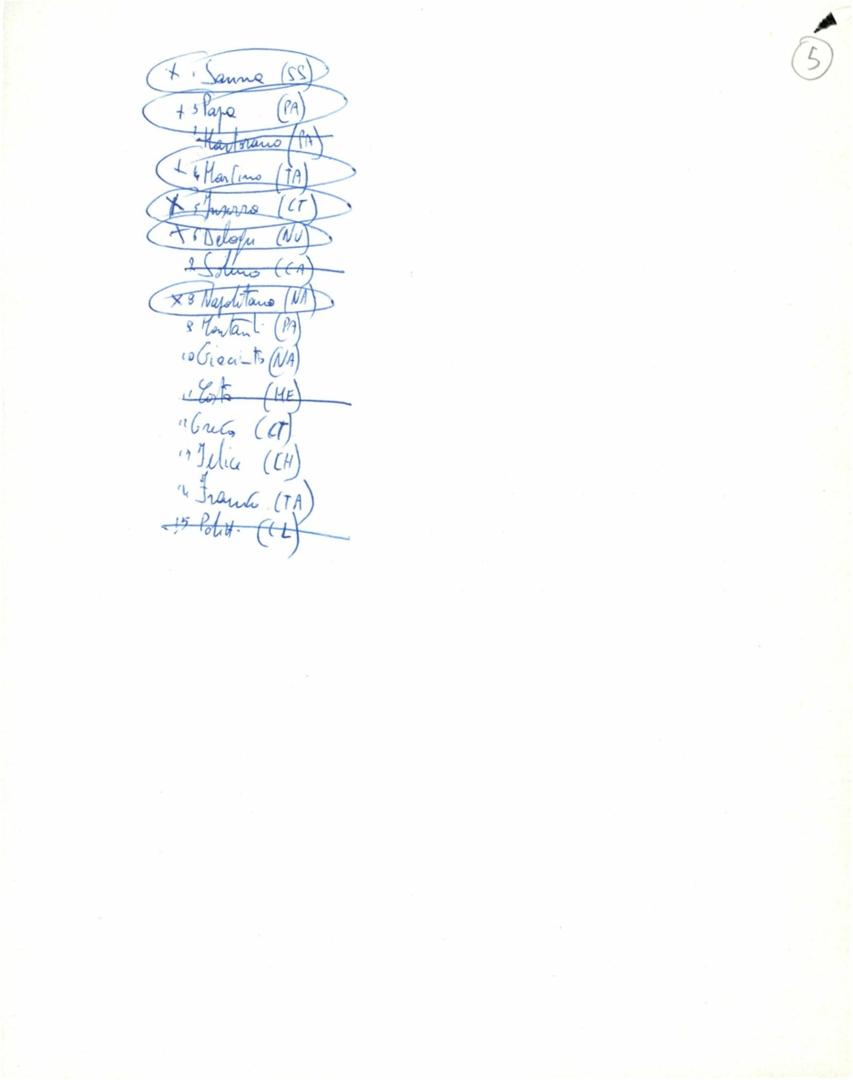 5
+ 1 Sanna (SS)
+ 3 Papa (PA)
Martorano (PA)
+ 4 Martino (TA)
x 5 (CT)
+ 6 Delogu (NU)
(CA)
x 8 Napolitano (NA)
9 Montanti (PA)
10 Giacinto (NA)
11 Costa (ME)
12 Greco (CT)
13 Felice (CH)
14 Franco (TA)
15 Politi (CL)